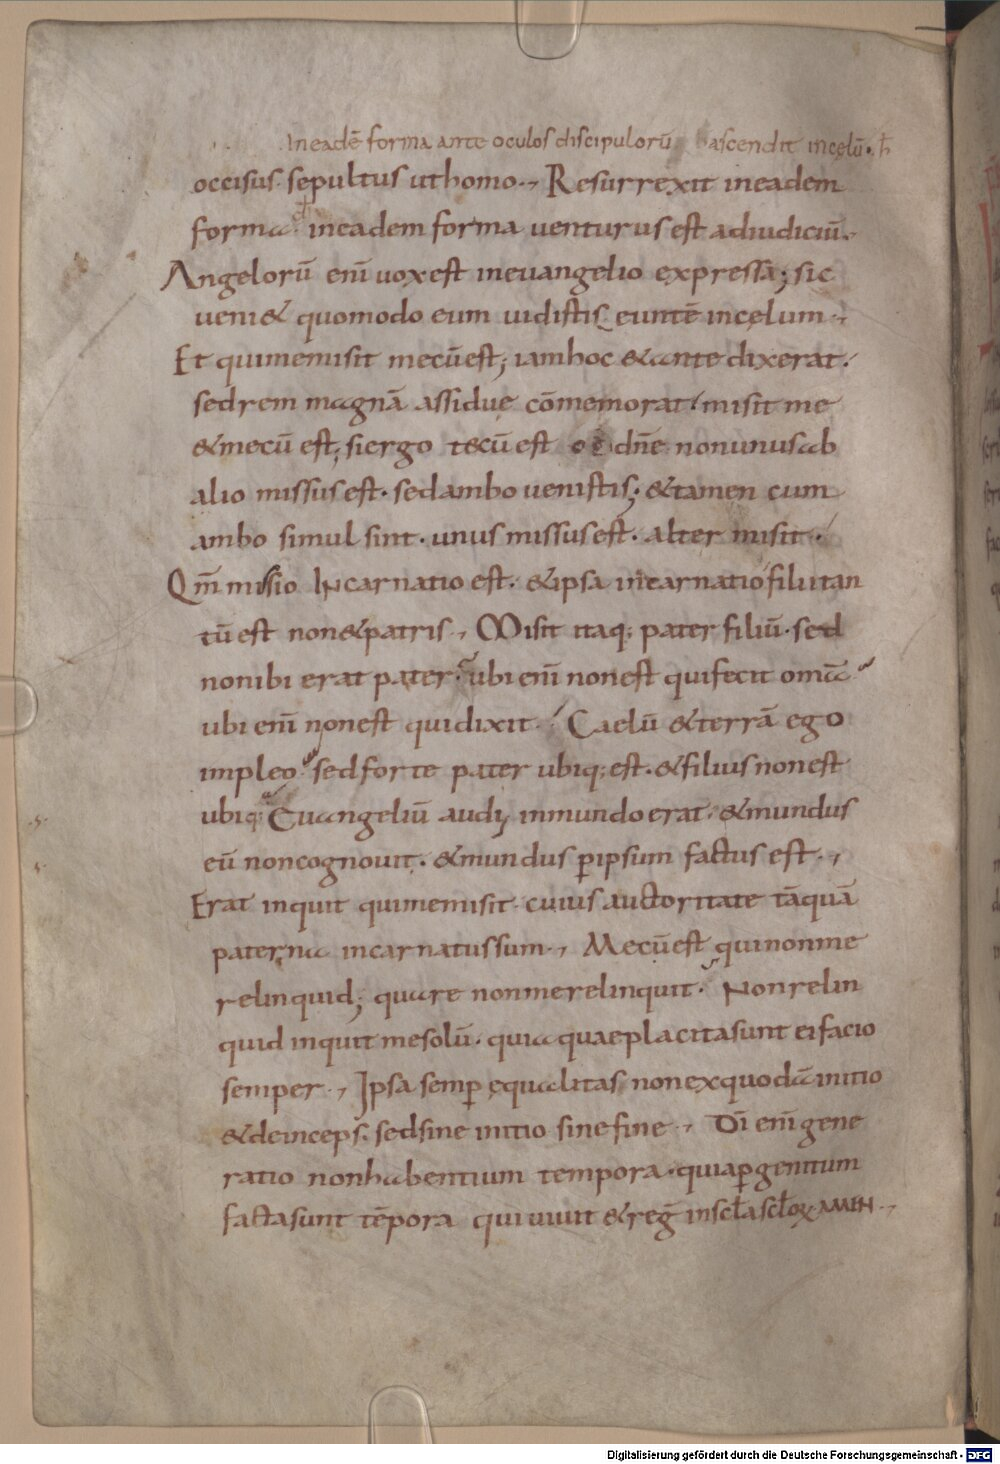 In eadē forma ante oculos discipulorū ascendit incęlū · h̄
occisus · sepultus uthomo ·, Resurrexit ineadem
forma · ineadem forma uenturus est adiudiciū ·,
Angelorū enī uox est ineuangelio expressa; sic
ueni& quomodo eum uidistis euntē incęlum ·,
Et quimemisit mecū est; iamhoc &ante dixerat ·
sedrem magnā assidue cōmemorat · misit me
&mecū est; siergo tecū est o dn̄e nonunusab
alio missus est · sedambo uenistis; &tamen cum
ambo simul sint · unus missus est · alter misit ·
Qm̄ missio Incarnatio est · &ipsa incarnatio filii tan
tū est non&patris ·, Misit itaq; pater filiū · sed
nonibi erat pater · ubi enī nonest quifecit omīa
ubi enī nonest quidixit · Caelū &terrā ego
impleo · sedforte pater ubiq; est · &filius nonest
ubiq; Euangeliū audi; inmundo erat · &mundus
eū noncognouit · &mundus p̄ipsum factus est ·,
Erat inquit quimemisit · cuius auctoritate tāquā
paterna incarnatus sum ·, Mecū est quinonme
relinquid; quare nonmerelinquit · Nonrelin
quid inquit mesolū · quia quaeplacita sunt ei facio
semper ·, Ipsa semp̄ ęqualitas nonexquodā initio
&deinceps · sedsine initio sinefine ·, Dī enī gene
ratio nonhabentium tempora · quiap̄genitum
facta sunt tēpora qui uiuit &reḡ inscl̄a scl̄oꝝ AMEN ·,
Digitalisierung gefördert durch die Deutsche Forschungsgemeinschaft - DFG